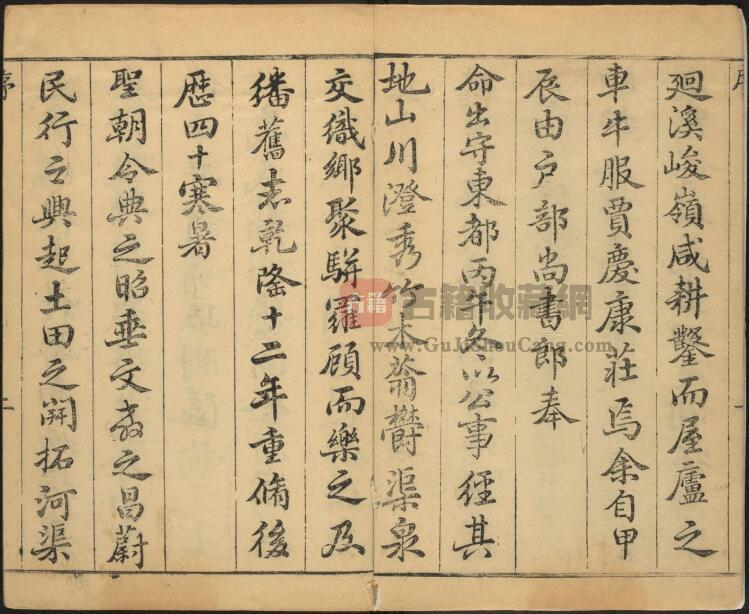 迴溪峻嶺咸耕鑿而屋廬之
車牛服賈慶康莊焉余自甲
辰由戶部尚書郎奉
命出守東都丙午冬以公事經其
地山川澄秀竹木蓊欝渠泉
交織鄉聚駢羅顧而樂之及
繙舊志乾隆十二年重脩後
歷四十寒暑
聖朝令典之昭垂文教之昌蔚
民行之興起土田之開拓河渠
序
二
古籍
古籍收藏網
www.GuJiShouCang.com